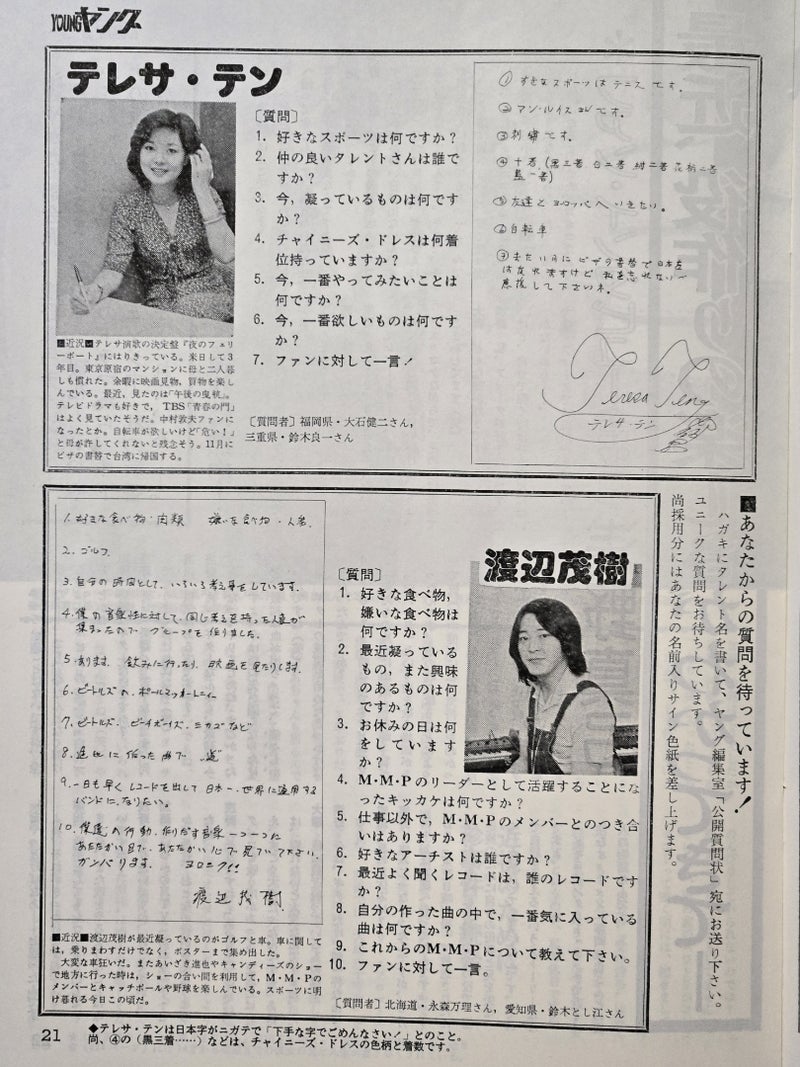 YOUNGヤング
テレサ・テン
〔質問〕
1. 好きなスポーツは何ですか？
2. 仲の良いタレントさんは誰で
すか？
3. 今，凝っているものは何です
か？
4. チャイニーズ・ドレスは何着
位持っていますか？
5. 今，一番やってみたいことは
何ですか？
6. 今，一番欲しいものは何です
か？
7. ファンに対して一言！
〔質問者〕福岡県・大石健二さん，
三重県・鈴木良一さん
■近況■テレサ演歌の決定盤『夜のフェリ
ーボート』にはりきっている。来日して3
年目。東京原宿のマンションに母と二人暮
しも慣れた。余暇に映画見物，買物を楽し
んでいる。最近，見たのは「午後の曳航」。
テレビドラマも好きで，TBS「青春の門」
はよく見ていたそうだ。中村敦夫ファンに
なったとか。自転車が欲しいけど「危い！」
と母が許してくれないと残念そう。11月に
ビザの書替で台湾に帰国する。
① すきなスポーツはテニスです。
② アン・ルイスさんです。
③ 刺繍です。
④ 十着(黒三着 白二着 紺二着 花柄二着
藍一着)
⑤ 友達とヨーロッパへいきたい。
⑥ 自転車
⑦ またいちにビザの書替で日本を
はなれますけど 私を忘れないで
応援して下さいネ。
Teresa Teng
テレサ・テン
1. 好きな食べ物・肉類 嫌いな食べ物・人参。
2. ゴルフ。
3. 自分の時間として、いろいろ考え事をしています。
4. 僕の音楽性に対して、同じ考えを持った人達が
集まったので グループを作りました。
5. あります。飲みに行ったり、映画を見たりします。
6. ビートルズの、ポールマッカートニィー
7. ビートルズ、ビーチボーイズ、シカゴなど
8. 最近に作った曲で 道
9. 一日も早くレコードを出して日本一、世界に通用する
バンドになりたい。
10. 僕達の行動、創りだす音楽一つ一つに
あたたかい目で、あたたかい心で見ていて下さい。
ガンバります。 ヨロシク!!
渡辺茂樹
渡辺茂樹
〔質問〕
1. 好きな食べ物，
嫌いな食べ物は
何ですか？
2. 最近凝っている
もの，また興味
のあるものは何
ですか？
3. お休みの日は何
をしています
か？
4. M・M・Pのリーダーとして活躍することにな
ったキッカケは何ですか？
5. 仕事以外で，M・M・Pのメンバーとのつき合
いはありますか？
6. 好きなアーチストは誰ですか？
7. 最近よく聞くレコードは，誰のレコードです
か？
8. 自分の作った曲の中で，一番気に入っている
曲は何ですか？
9. これからのM・M・Pについて教えて下さい。
10. ファンに対して一言。
〔質問者〕北海道・永森万理さん，愛知県・鈴木とし江さん
■近況■渡辺茂樹が最近凝っているのがゴルフと車。車に関して
は，乗りまわすだけでなく，ポスターまで集め出した。
大変な車狂いだ。またあいざき進也やキャンディーズのショー
で地方に行った時は，ショーの合い間を利用して，M・M・Pの
メンバーとキャッチボールや野球を楽しんでいる。スポーツに明
け暮れる今日この頃だ。
■あなたからの質問を待っています！
ハガキにタレント名を書いて、ヤング編集室「公開質問状」宛にお送り下さい。
ユニークな質問をお待ちしています。
尚採用分にはあなたの名前入りサイン色紙を差し上げます。
21
◆テレサ・テンは日本字がニガテで「下手な字でごめんなさい！」とのこと。
尚、④の（黒三着……）などは、チャイニーズ・ドレスの色柄と着数です。